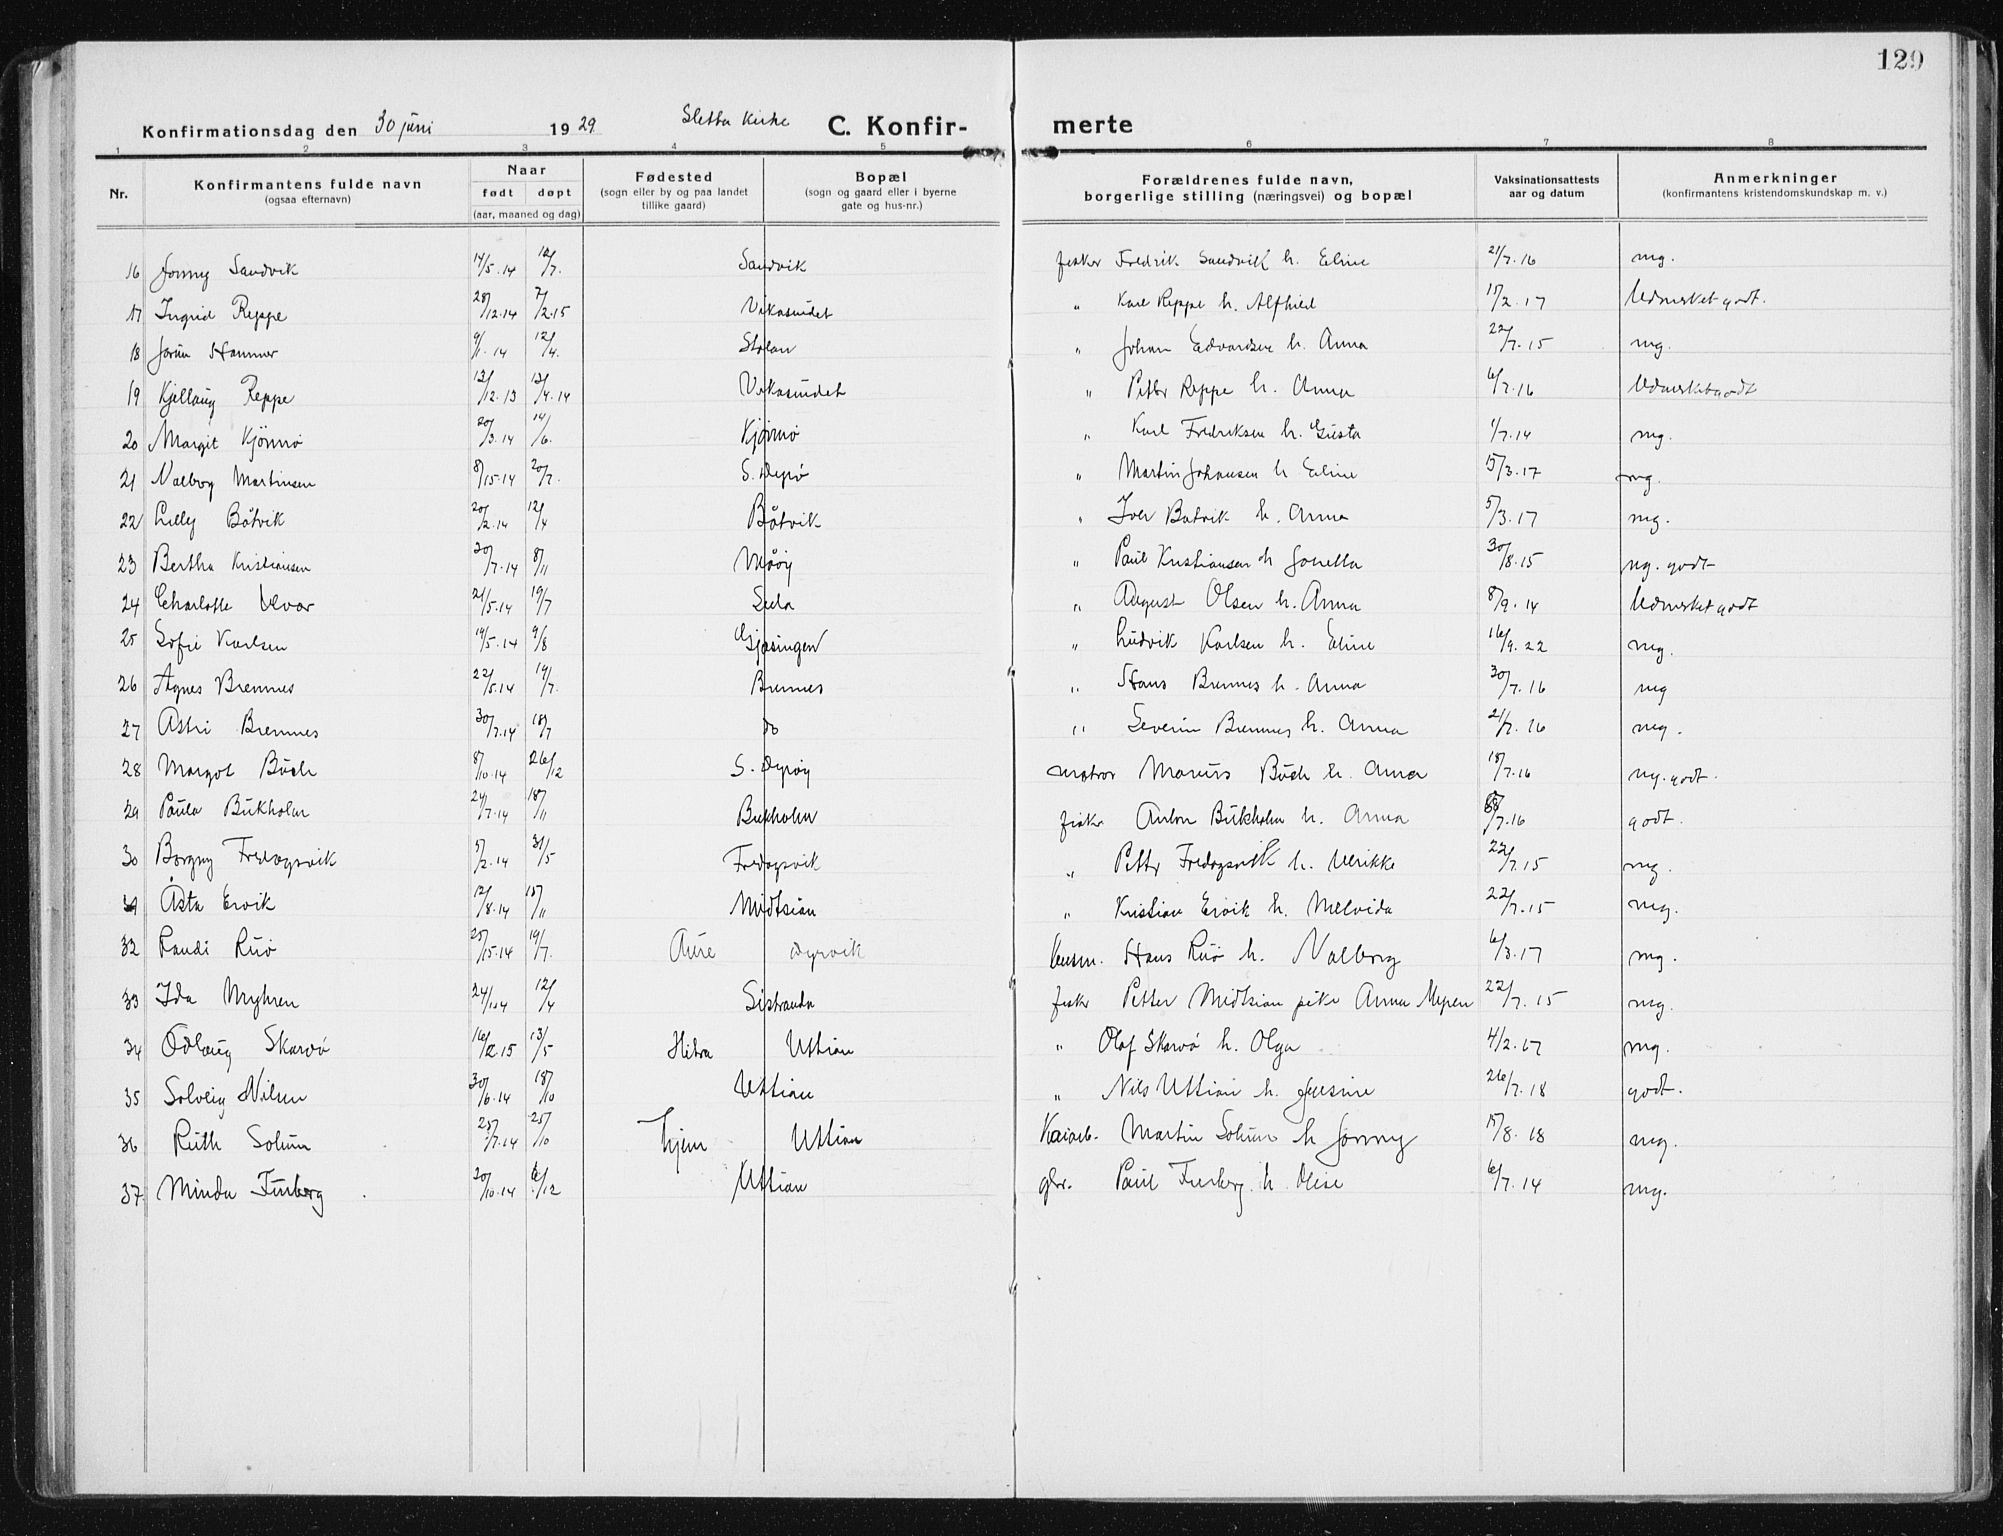 129
Konfirmationsdag den 30 juni 1929 Sletta Kirke C. Konfir- merte
1 2 3 4 5 6 7 8
Nr. Konfirmantens fulde navn (ogsaa efternavn) Naar født døpt (aar, maaned og dag) Fødested (sogn eller by og paa landet tillike gaard) Bopæl (sogn og gaard eller i byerne gate og hus-nr.) Forældrenes fulde navn, borgerlige stilling (næringsvei) og bopæl Vaksinationsattests aar og datum Anmerkninger (konfirmantens kristendomskundskap m. v.)
16 Jonny Sandvik 14/5.14 12/7. Sandvik fisker Fredrik Sandvik h. Eline 21/7.16 mg.
17 Ingrid Reppe 28/12.14 7/2.15 Vikasundet " Karl Reppe h. Alfhild 15/2.17 Udmerket godt.
18 Jorun Hammer 9/1.14 12/4. Stolan " Johan Edvardsen h. Anna 22/7.15 mg.
19 Kjellaug Reppe 13/12.13 13/4.14 Vikasundet " Petter Reppe h. Anna 6/7.16 Udmerket godt
20 Margit Kjönnö 20/3.14 14/6. Kjønnø " Karl Fredriksen h. Gusta 1/7.14 mg.
21 Valborg Martinsen 8/15.14 20/7. S. Dyrø " Martin Johansen h Eline 15/3.17 mg.
22 Lilly Båtvik 20/2.14 12/4 Båtvik " Iver Batvik h. Anna 5/3.17 mg.
23 Bertha Kristiansen 20/7.14 8/11 Måøy " Paul Kristiansen h Jonetta 30/8.15 mg. godt
24 Charlotte Ulvar 21/5.14 19/7 Sula " August Olsen h. Anna 8/9.14 Udmerket godt
25 Sofie Karlsen 14/5.14 9/8 Gjæsingen " Ludvik Karlsen h. Eline 16/9.22 mg.
26 Agnes Bremnes 22/5.14 19/7. Bremnes " Hans Bremnes h. Anna 30/7.16 mg
27 Astri Bremnes 30/7.14 18/7 do " Severin Bremnes h. Anna 21/7.16 mg.
28 Margot Buch 8/10.14 26/12 S. Dyrøy matros Marius Buch h. Anna 18/7.16 mg. godt.
29 Paula Bukholm 24/7.14 18/11 Bukholm fisker Anton Bukholm h. Anna /7.16 godt.
30 Borgny Fredagsvik 5/2.14 31/5 Fredagsvik " Petter Fredagsvik h. Ulrikke 22/7.15 mg.
31 Åsta Ervik 12/8.14 18/11 Midtsian " Kristian Ervik h. Melvida 22/7.15 mg.
32 Randi Ruø 25/15.14 19/7. Aure Dyrvik Hans Ruø h. Valborg 6/3.17 mg.
33 Ida Myhren 24/1.14 12/4 Sistranda fisker Petter Midtsian pike Anna Myren 22/7.15 mg.
34 Odlaug Skarvø 16/2.15 13/5 Hitra Uttian " Olaf Skarvø h. Olga 4/2.17 mg.
35 Solveig Nilsen 30/6.14 18/10 Uttian " Nils Uttian h. Gusine 26/7.18 godt.
36 Ruth Solum 25/7.14 25/10 Hjem Uttian Kaiarb. Martin Solum h Jonny 15/8.18 mg.
37 Minda Furberg 20/10.14 6/12 Uttian gbr. Paul Furberg h Olise 6/7.14 mg.